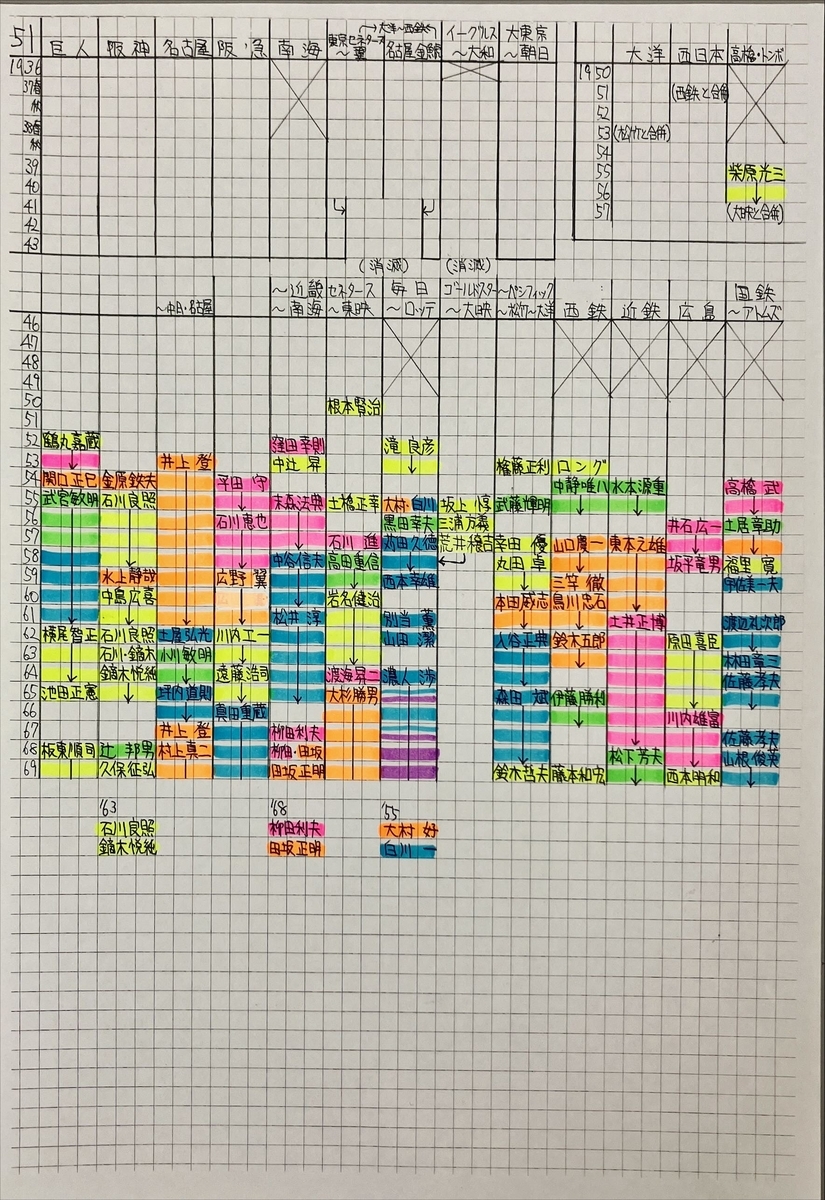 51 巨人 阪神 名古屋 阪急 南海 東京セネタース～翼 大洋～西鉄へ 名古屋金鯱 イーグルス～大和 大東京～朝日
1936
37春
秋
38春
秋
39
40
41
42
43
(消滅) (消滅)
大洋 西日本 高橋・トンボ
1950
51 (西鉄と合併)
52
53 (松竹と合併)
54
55 柴原光三
56 ↓
57 (大映と合併)
～中日・名古屋 ～近畿～南海 セネタース～東映 毎日～ロッテ ゴールドスター～大映 ～パシフィック～松竹～大洋 西鉄 近鉄 広島 国鉄～アトムズ
46
47
48
49
50 根本賢治
51
52 鶴丸嘉蔵 窪田幸則 滝良彦
53 ↓ 井上登 中辻昇 ↓ 権藤正利 ロング
54 関口正巳 金原鉄夫 平田守 中静唯八 水本源重 高橋武
55 武宮敏明 石川良照 末森法典 土橋正幸 大村・白川 坂上惇 武藤輝明
56 石川恵也 黒田幸夫 三浦方義 井石広一 土居章助
57 石川進 苅田久徳 荒井穐吉 幸田優 山口慶一 東本元雄
58 中谷信夫 高田重信 丸田卓 坂本竜男 福里寛
59 水上静哉 広野翼 西本幸雄 三笠徹 宇佐美一夫
60 中島広喜 岩名健治 本田威志 鳥川忠石
61 松井淳 別当薫 土井正博 渡辺礼次郎
62 横尾智正 石川良照 土屋弘光 川内工一 山田潔 入谷正典 鈴木五郎 原田喜臣
63 石川・鏑木 小川敏明 林田章三
64 鏑木悦純 遠藤浩司 渡海昇二 濃人渉 佐藤孝夫
65 池田正憲 坪内道則 大杉勝男 森田斌 伊藤勝利
66 真田重蔵 川内雄富
67 井上登 柳田利夫 佐藤孝夫
68 板東順司 辻邦男 村上真二 柳田・田坂 松下芳夫 山根俊英
69 久保征弘 田坂正明 鈴木哲夫 藤本和宏 西本明和
'63 '68 '55
石川良照 柳田利夫 大村好
鏑木悦純 田坂正明 白川一